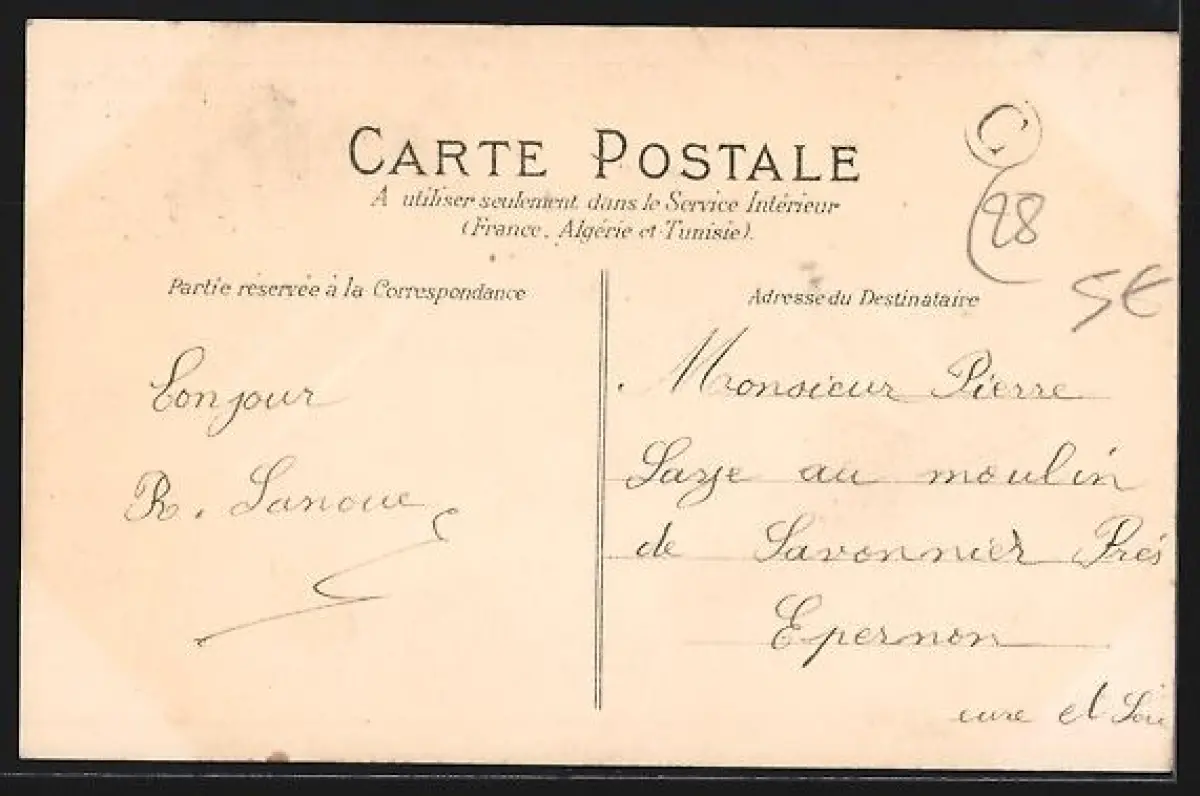 CARTE POSTALE
A utiliser seulement dans le Service Intérieur
(France, Algérie et Tunisie).
C
28
5€
Partie réservée à la Correspondance
Bonjour
R. Lanoue
Adresse du Destinataire
Monsieur Pierre
Laye au moulin
de Savonnier Prés
Epernon
eure et Loi